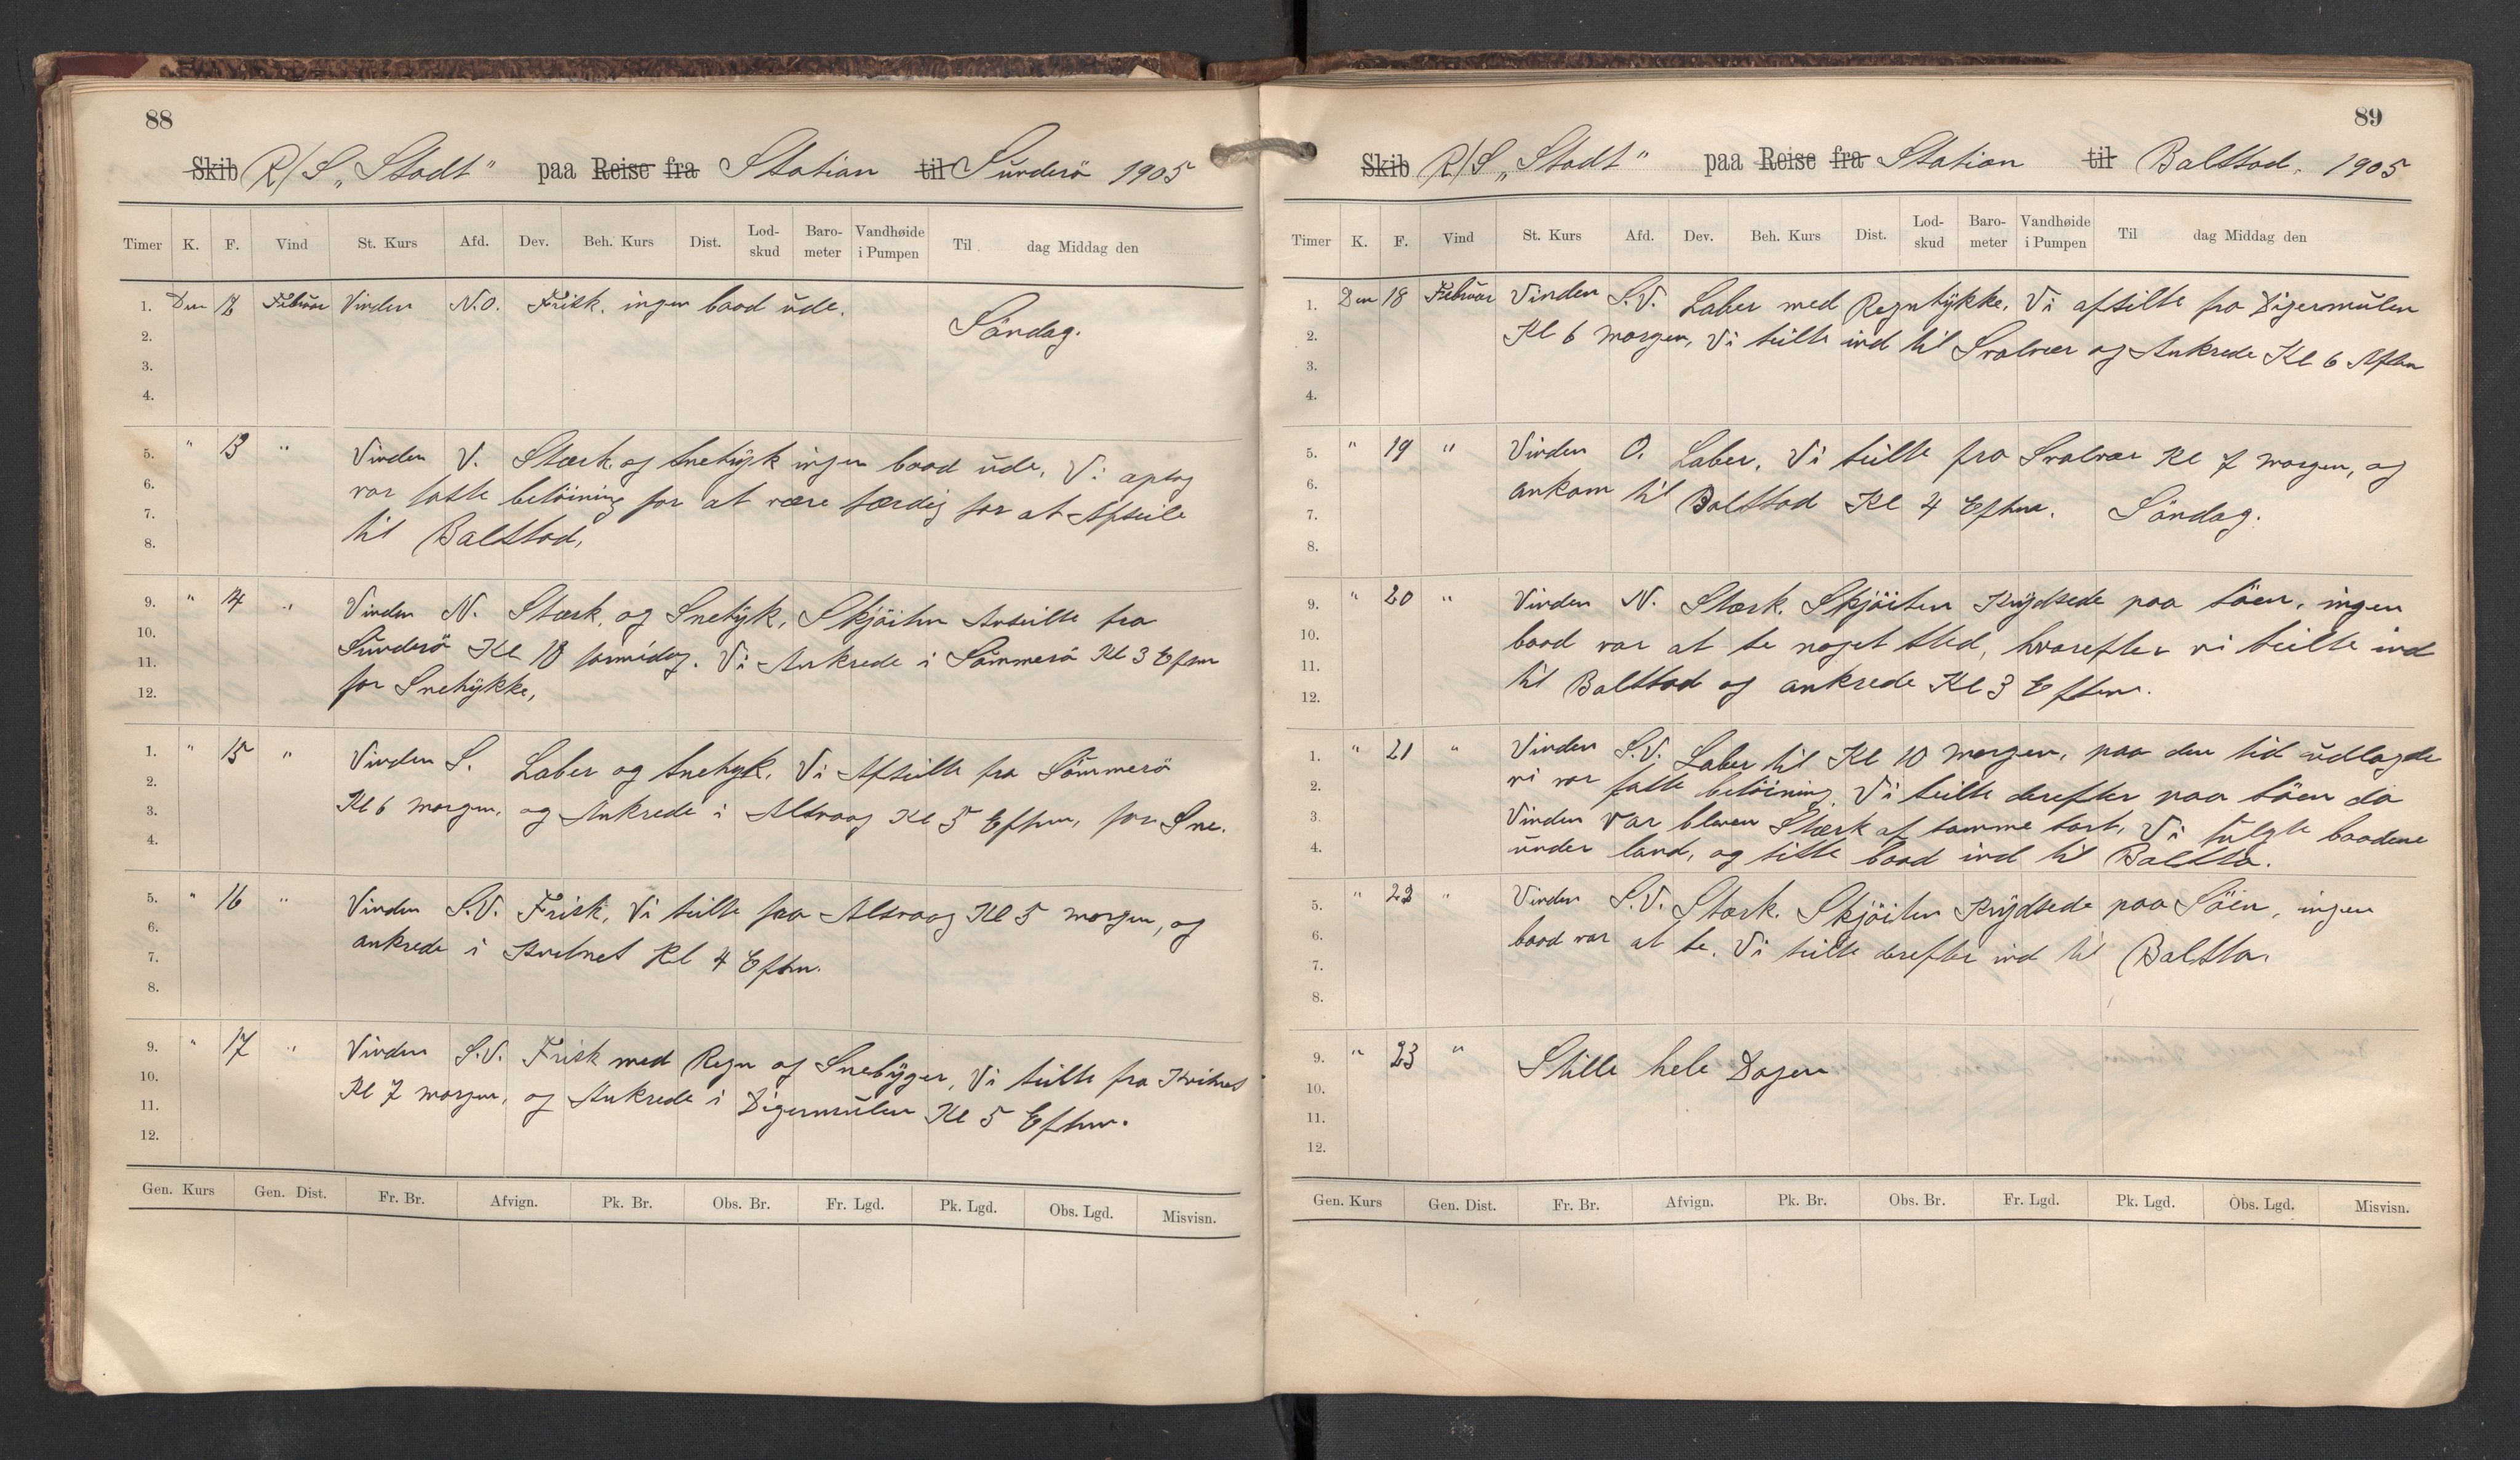 88
Skib R/S „Stadt" paa Reise fra Station til Sunderö 1905
Timer K. F. Vind St. Kurs Afd. Dev. Beh. Kurs Dist. Lod-skud Baro-meter Vandhøide i Pumpen Til dag Middag den
1. Den 12 Februar Vinden N.O. Frisk. ingen baad ude.
2. Söndag.
3.
4.
5. " 13 " Vinden V. Stærk. og Snetyk ingen baad ude. Vi optog
6. vor faste betöining for at være færdig for at Afseile
7. til Balstad,
8.
9. " 14 " Vinden N. Stærk. og Snetyk, Skjöiten Avseilte fra
10. Sunderö Kl 10 formidag. Vi Ankrede i Sömmerö Kl 3 Efm
11. for Snetykke,
12.
1. " 15 " Vinden S. Laber og Snetyk. Vi Afseilte fra Sömmerö
2. Kl 6 morgen, og Ankrede i Alsvaag Kl 5 Eftm, for Sne.
3.
4.
5. " 16 " Vinden S.V. Frisk, Vi seilte fra Alsvaag Kl 5 morgen, og
6. ankrede i Kvitnes Kl 4 Eftm.
7.
8.
9. " 17 " Vinden S.V. Frisk med Regn og Snebyger, Vi seilte fra Kvitnes
10. Kl 7 morgen, og Ankrede i Digermulen Kl 5 Eftm.
11.
12.
Gen. Kurs Gen. Dist. Fr. Br. Afvign. Pk. Br. Obs. Br. Fr. Lgd. Pk. Lgd. Obs. Lgd. Misvisn.
89
Skib R/S „Stadt" paa Reise fra Station til Balstad. 1905
Timer K. F. Vind St. Kurs Afd. Dev. Beh. Kurs Dist. Lod-skud Baro-meter Vandhøide i Pumpen Til dag Middag den
1. Den 18 Februar Vinden S.V. Laber med Regntykke. Vi afseilte fra Digermulen
2. Kl 6 morgen, Vi seilte ind til Svolvær og Ankrede Kl 6 Aften
3.
4.
5. " 19 " Vinden O. Laber. Vi seilte fra Svolvær Kl 7 morgen, og
6. ankom til Balstad Kl 4 Eftm. Söndag.
7.
8.
9. " 20 " Vinden N. Stærk. Skjöiten Krydsede paa Söen, ingen
10. baad var at se noget sted, hvorefter vi seilte ind
11. til Balstad og ankrede Kl 3 Eftm.
12.
1. " 21 " Vinden S.V. Laber til Kl 10 morgen, paa den tid udlagde
2. vi vor faste betöining. Vi seilte derefter paa Söen da
3. Vinden var bleven Stærk af samme sort, Vi fulgte baadene
4. under land, og sitte baad ind til Balsta.
5. " 22 " Vinden S.V. Stærk. Skjöiten Krydsede paa Söen, ingen
6. baad var at se. Vi seilte derefter ind til Balsta.
7.
8.
9. " 23 " Stille hele Dagen
10.
11.
12.
Gen. Kurs Gen. Dist. Fr. Br. Afvign. Pk. Br. Obs. Br. Fr. Lgd. Pk. Lgd. Obs. Lgd. Misvisn.